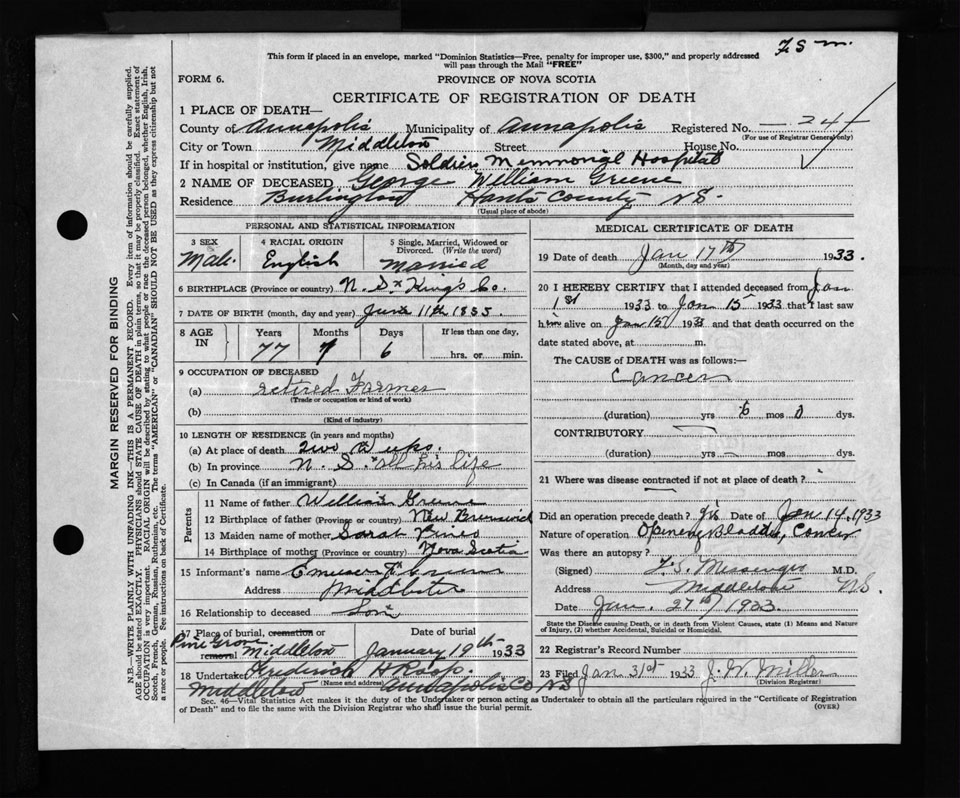 F.S.M.
This form if placed in an envelope, marked "Dominion Statistics—Free, penalty for improper use, $300," and properly addressed
will pass through the Mail "FREE"
FORM 6. PROVINCE OF NOVA SCOTIA
CERTIFICATE OF REGISTRATION OF DEATH
1 PLACE OF DEATH—
County of Annapolis Municipality of Annapolis Registered No. 24
(For use of Registrar General only)
City or Town Middleton Street House No.
If in hospital or institution, give name Soldiers Memmorial Hospital
2 NAME OF DECEASED George William Greene
Residence Burlington Hants County NS.
(Usual place of abode)
PERSONAL AND STATISTICAL INFORMATION
3 SEX 4 RACIAL ORIGIN 5 Single, Married, Widowed or
Divorced. (Write the word)
Male. English Married
6 BIRTHPLACE (Province or country) N. S. King's Co.
7 DATE OF BIRTH (month, day and year) June 11th 1855.
8 AGE IN Years Months Days If less than one day,
77 7 6 hrs. or min.
9 OCCUPATION OF DECEASED
(a) retired Farmer
(Trade or occupation or kind of work)
(b)
(Kind of industry)
10 LENGTH OF RESIDENCE (in years and months)
(a) At place of death two
(b) In province N. S. all his life
(c) In Canada (if an immigrant)
Parents
11 Name of father William Greene
12 Birthplace of father (Province or country) New Brunswick
13 Maiden name of mother Sarah
14 Birthplace of mother (Province or country) Nova Scotia
15 Informant's name
Address Middleton
16 Relationship to deceased Son
17 Place of burial, cremation or
removal Pine Grove Middleton
Date of burial
January 19th 1933
18 Undertaker
(Name and address)
Middleton Annapolis Co NS
MEDICAL CERTIFICATE OF DEATH
19 Date of death Jan 17th 1933.
(Month, day and year)
20 I HEREBY CERTIFY that I attended deceased from Jan
1st 1933 to Jan 15 1933 that I last saw
him alive on Jan 15 1933 and that death occurred on the
date stated above, at m.
The CAUSE of DEATH was as follows:—
Cancer
(duration) yrs 6 mos 0 dys.
CONTRIBUTORY —
(duration) yrs — mos dys.
21 Where was disease contracted if not at place of death?
Did an operation precede death? yes Date of Jan 14, 1933
Nature of operation Opening Bladder, Cancer
Was there an autopsy?
(Signed) F. S. Messenger M.D.
Address Middleton NS.
Date Jan. 27th 1933.
State the Disease causing Death, or in death from Violent Causes, state (1) Means and Nature
of Injury, (2) whether Accidental, Suicidal or Homicidal.
22 Registrar's Record Number
23 Filed Jan 31st 1933 J. W. Miller
(Division Registrar)
Sec. 46—Vital Statistics Act makes it the duty of the Undertaker or person acting as Undertaker to obtain all the particulars required in the "Certificate of Registration
of Death" and to file the same with the Division Registrar who shall issue the burial permit.
(OVER)
MARGIN RESERVED FOR BINDING
N.B.—WRITE PLAINLY WITH UNFADING INK—THIS IS A PERMANENT RECORD. Every item of information should be carefully supplied.
AGE should be stated EXACTLY. PHYSICIANS should STATE CAUSE OF DEATH in plain terms, so that it may be properly classified. Exact statement of
OCCUPATION is very important. RACIAL ORIGIN will be described by stating to what people or race the deceased person belonged, whether English, Irish,
Scotch, French, German, Russian, Ruthenian, etc. The terms "AMERICAN" or "CANADIAN" SHOULD NOT BE USED as they express citizenship but not
a race or people. See instructions on back of Certificate.